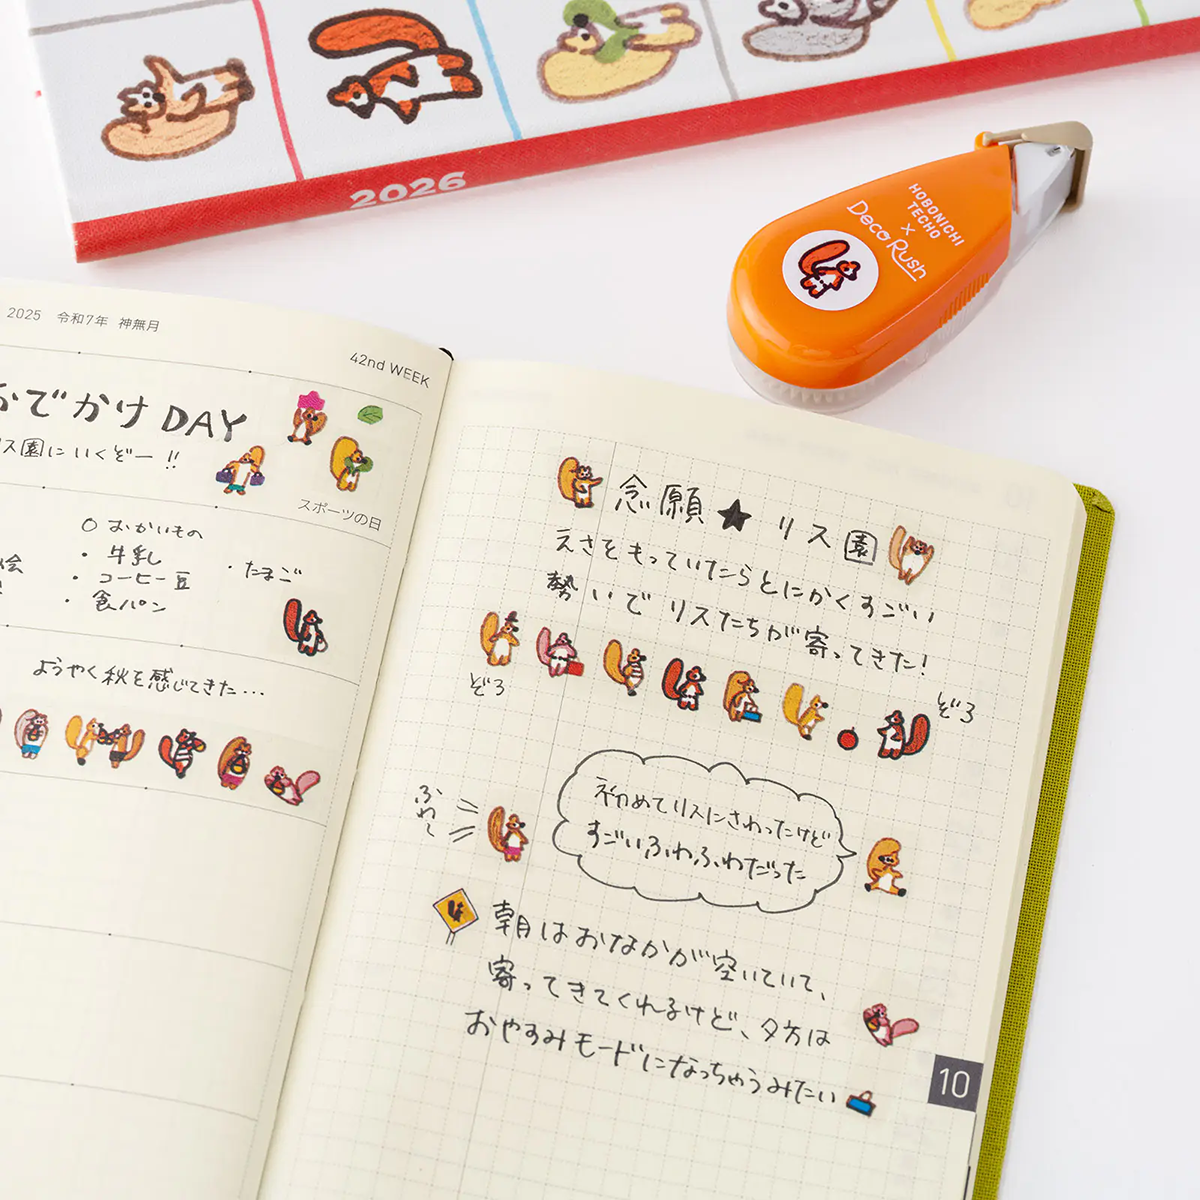 2026
HOBONICHI
TECHO
×
Deco Rush
2025 令和7年 神無月
42nd WEEK
おでかけDAY
ス園にいくぞー!!
スポーツの日
○ おかいもの
・牛乳
・コーヒー豆
・食パン
・たまご
ようやく秋を感じてきた…
念願★リス園
えさをもっていたらとにかくすごい
勢いでリスたちが寄ってきた!
ぞろ
ぞろ
ふわ〜
初めてリスにさわったけど
すごいふわふわだった
朝はおなかが空いていて、
寄ってきてくれるけど、夕方は
おやすみモードになっちゃうみたい
10